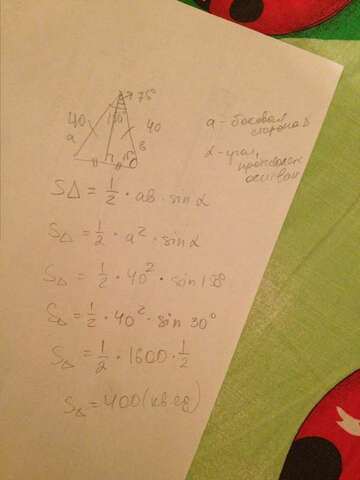 75°
150
40
40
a
b
15°
a - боковая
сторона Δ
α - угол,
против
основан
SΔ = 1/2 · ab · sin α
SΔ = 1/2 · a² · sin α
SΔ = 1/2 · 40² · sin 150°
SΔ = 1/2 · 40² · sin 30°
SΔ = 1/2 · 1600 · 1/2
SΔ = 400 (кв.ед)